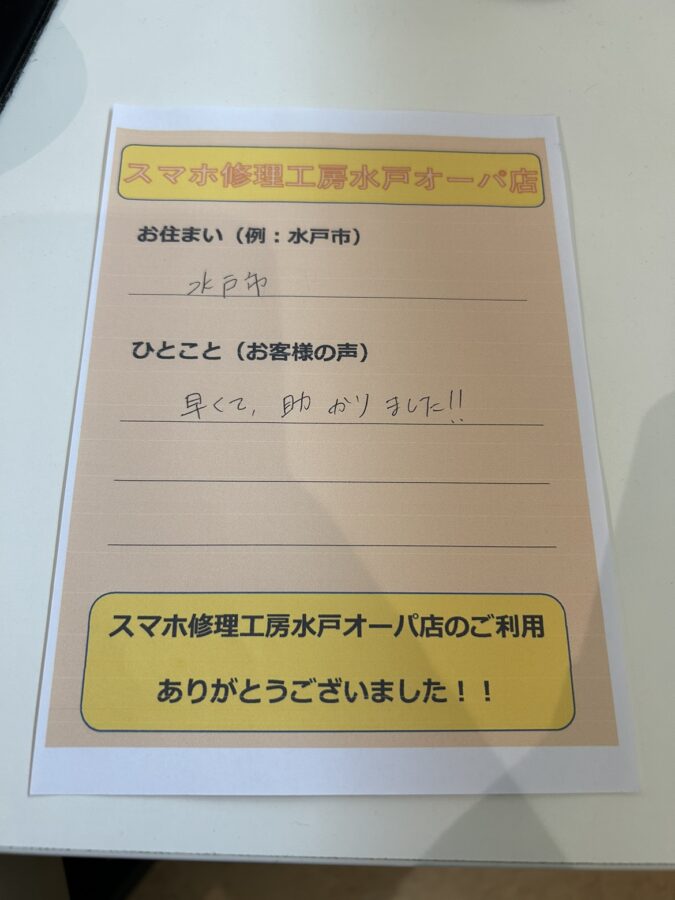 スマホ修理工房水戸オーパ店
お住まい（例：水戸市）
水戸市
ひとこと（お客様の声）
早くて、助かりました!!
スマホ修理工房水戸オーパ店のご利用
ありがとうございました！！